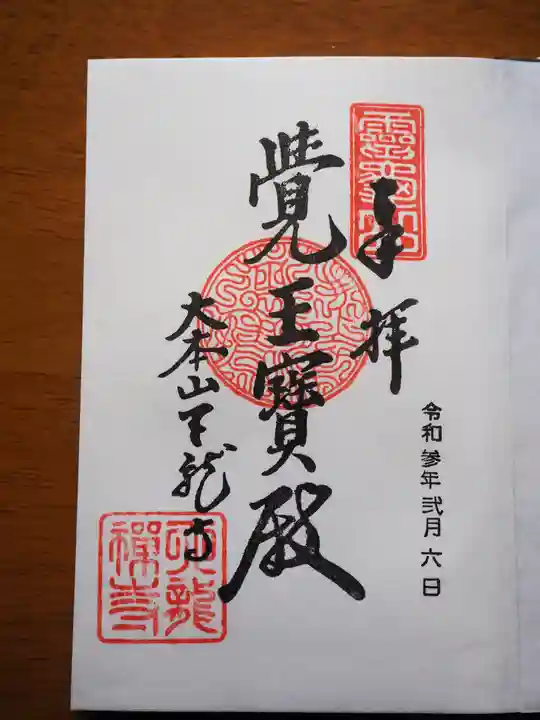 奉拝
令和参年弐月六日
覺王寳殿
大本山天龍寺
天龍
禅寺